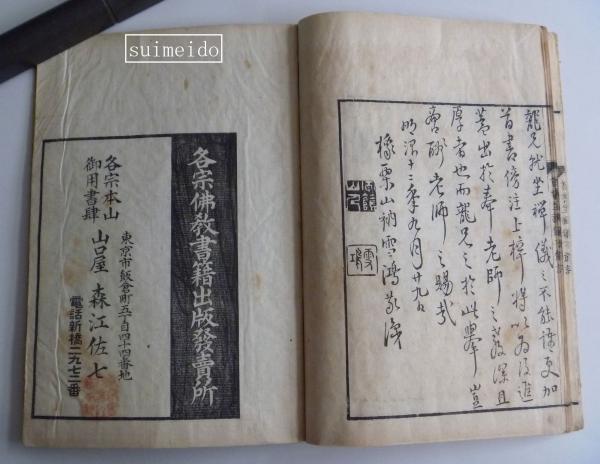 suimeido
龍兄然坐禪儀之不能諦更加
首書傍注上梓將以為後進
蓋出於奉老師之慈深且
厚者也而龍兄之於此舉豈
啻酬老師之賜哉
明治十二年九月廿九日
橡栗山衲雲鴻敬識
各宗佛教書籍出版發賣所
東京市飯倉町五丁目四十四番地
各宗本山
御用書肆
山口屋 森江佐七
電話新橋二九七二番